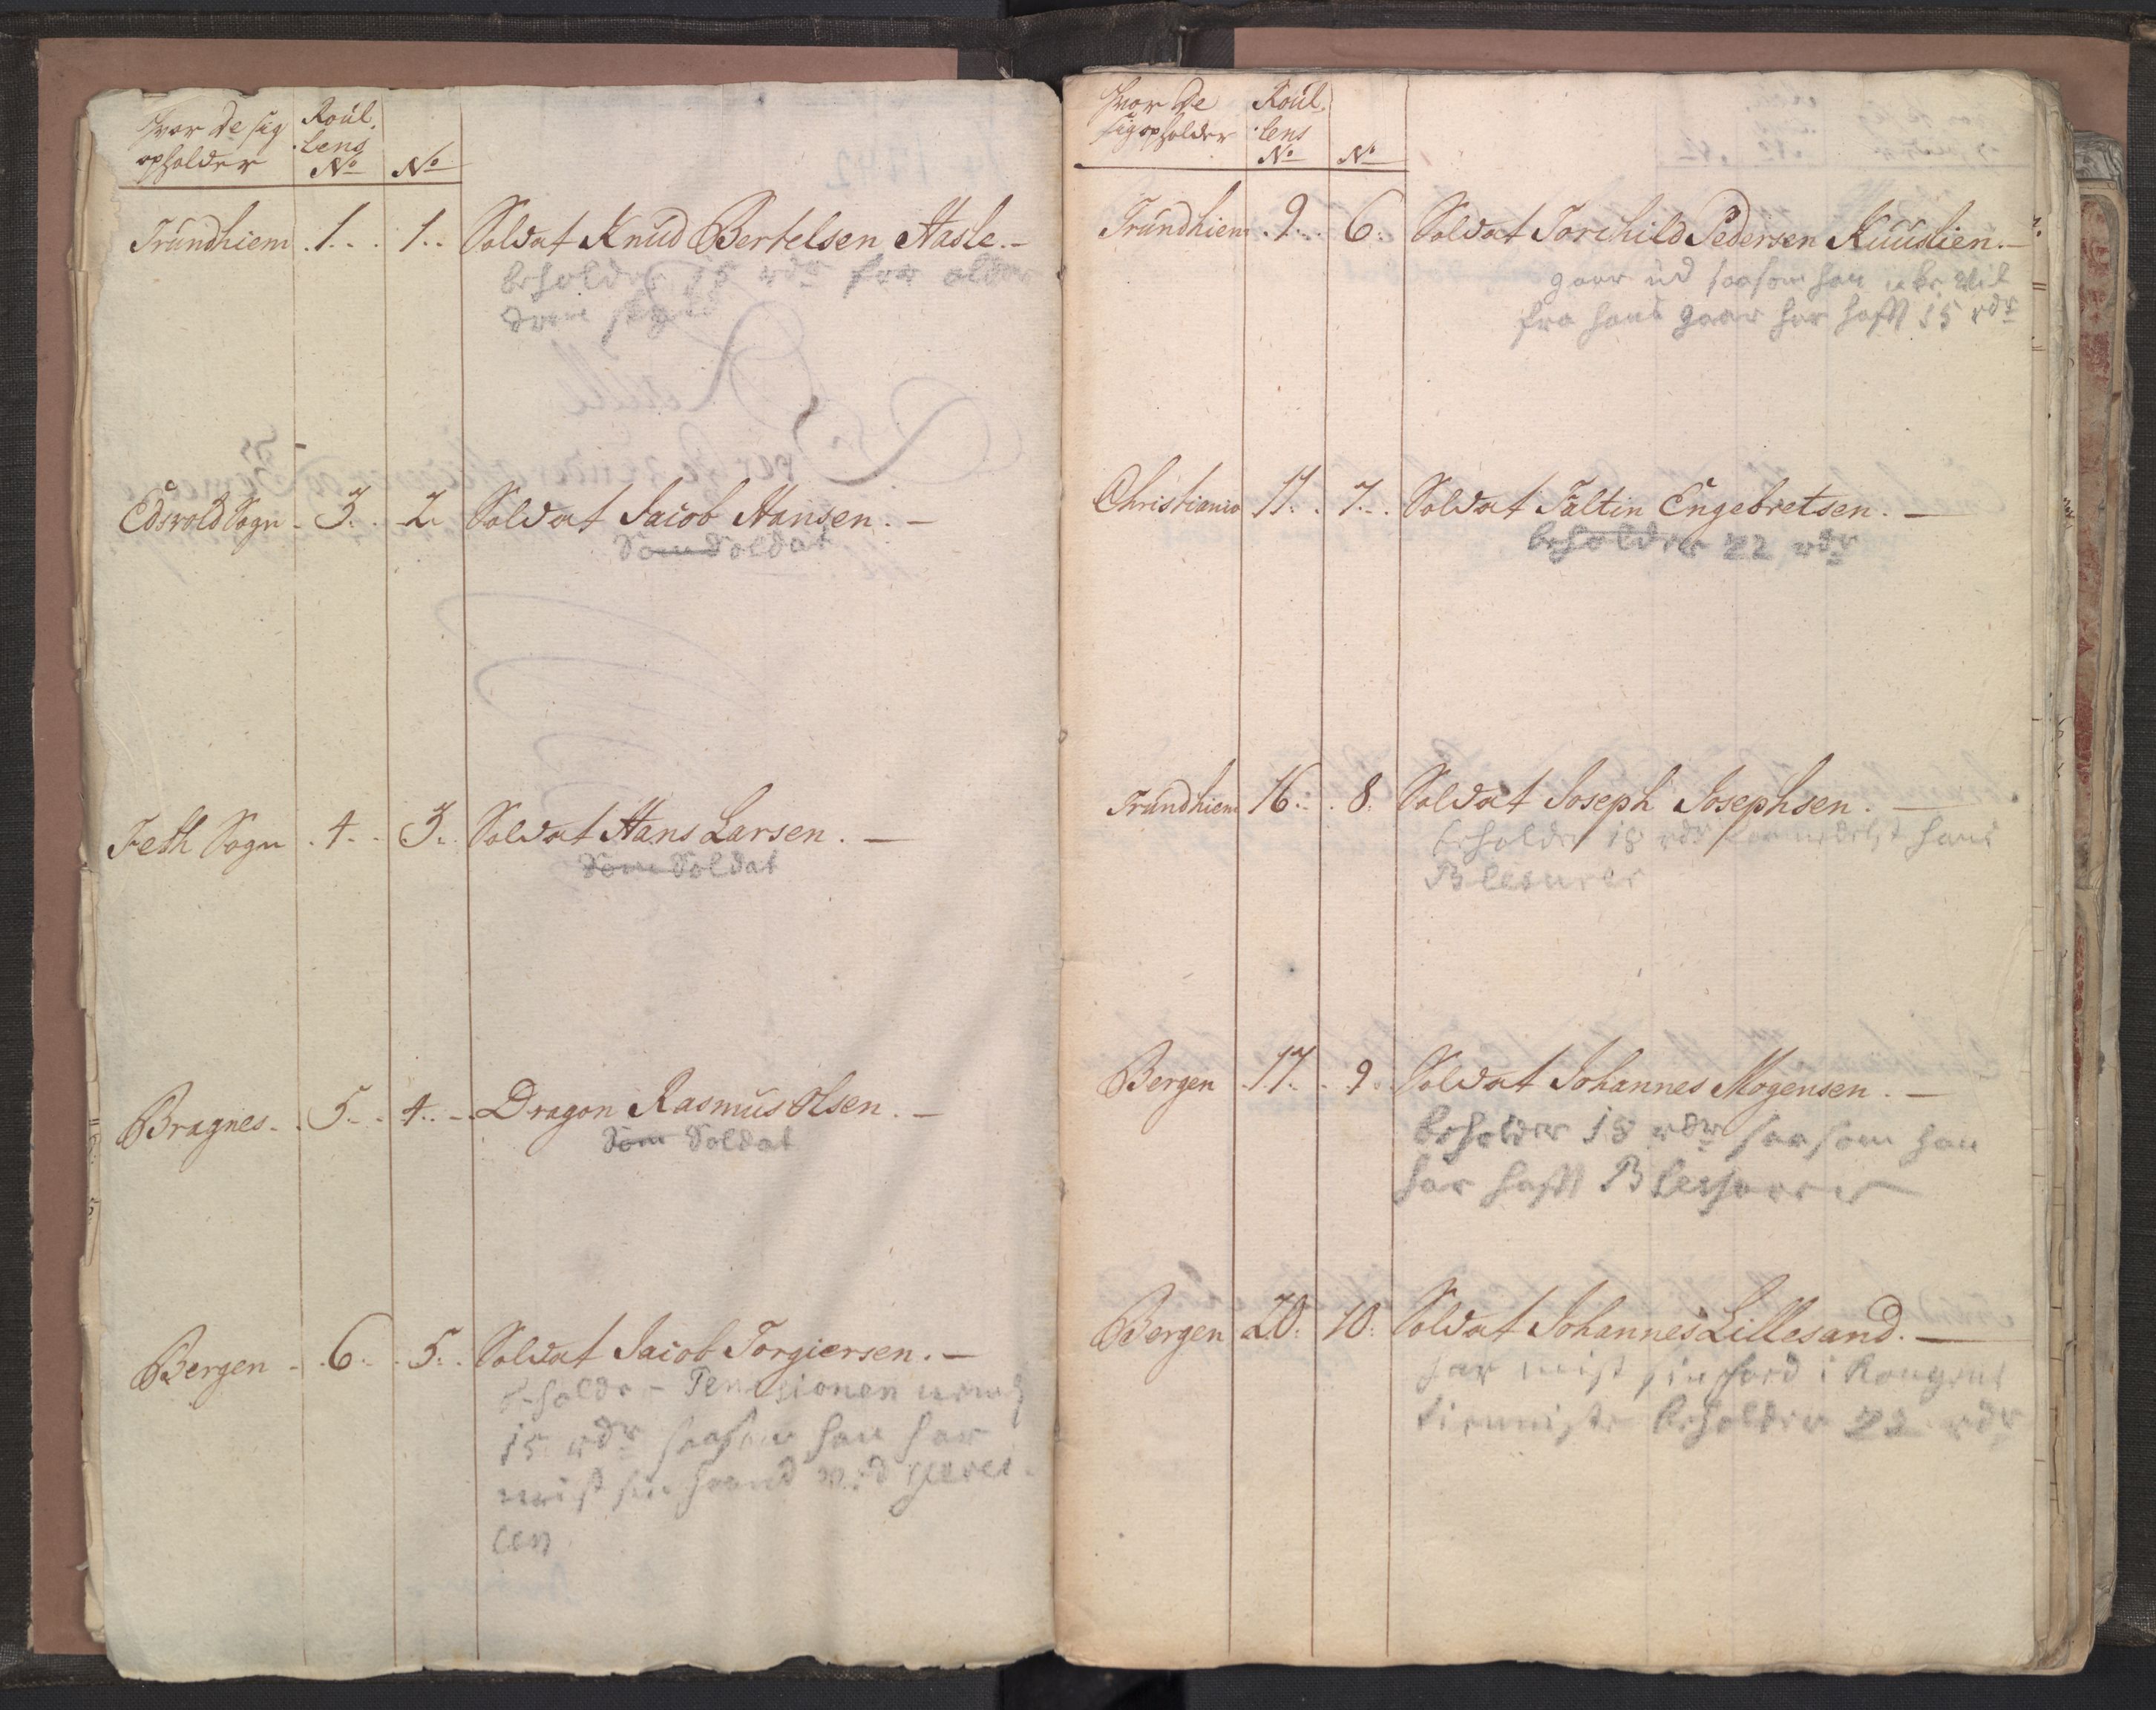 Hvor de sig
opholder
Roul-
lens
No
No
Trundhiem 1. 1. Soldat Knud Bertelsen Hasle.
beholder 15 rdr for alder
Edsvold Sogn 3. 2. Soldat Jacob Hansen.
Som Soldat
Feth Sogn 4. 3. Soldat Hans Larsen.
Som Soldat
Bragnes 5. 4. Dragon Rasmus Olsen.
Som Soldat
Bergen 6. 5. Soldat Jacob Torgiersen.
beholder Pensionen
15 rdr saasom han har
mist sin haand ved
Hvor de
sig opholder
Roul-
lens
No
No
Trundhiem 9. 6. Soldat Torchild Pedersen Kuuslien.
gaar ud saasom han vil
fra hans gaar har hafft 15 rdr
Christiania 11. 7. Soldat Faltin Engebretsen.
beholder 22 rdr
Trundhiem 16. 8. Soldat Joseph Josephsen.
beholder 18 rdr formedelst hans
Blesurer
Bergen 17. 9. Soldat Johannes Mogensen.
beholder 18 rdr saasom han
har hafft
Bergen 20. 10. Soldat Johannes Lillesand.
har mist sin i Kongens
tienniste beholder 22 rdr